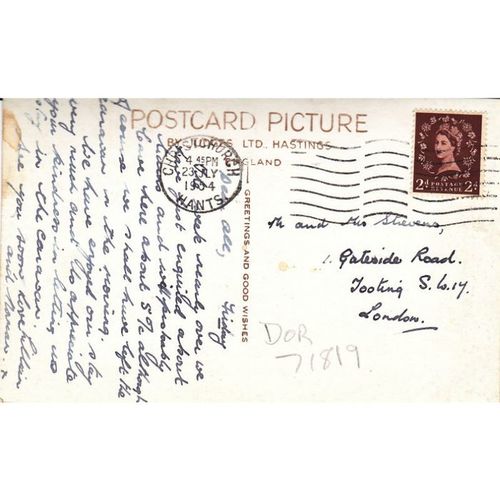 POSTCARD PICTURE
BY JUDGES LTD. HASTINGS
ENGLAND
CHRISTCHURCH
4 45PM
23 JLY
1954
HANTS
2d POSTAGE REVENUE 2d
GREETINGS AND GOOD WISHES
Mr and Mrs Stevens,
1. Gateside Road.
Tooting S.W.17.
London.
DOR
71819
Friday
Dear all,
week nearly over we
have just enquired about
trains and will probably
here about 5 Tc although
of course we should have left the
caravan in the morning.
We have enjoyed our stay
very much and do appreciate
your kindness in letting us
stay in the caravan.
See you soon love
and x